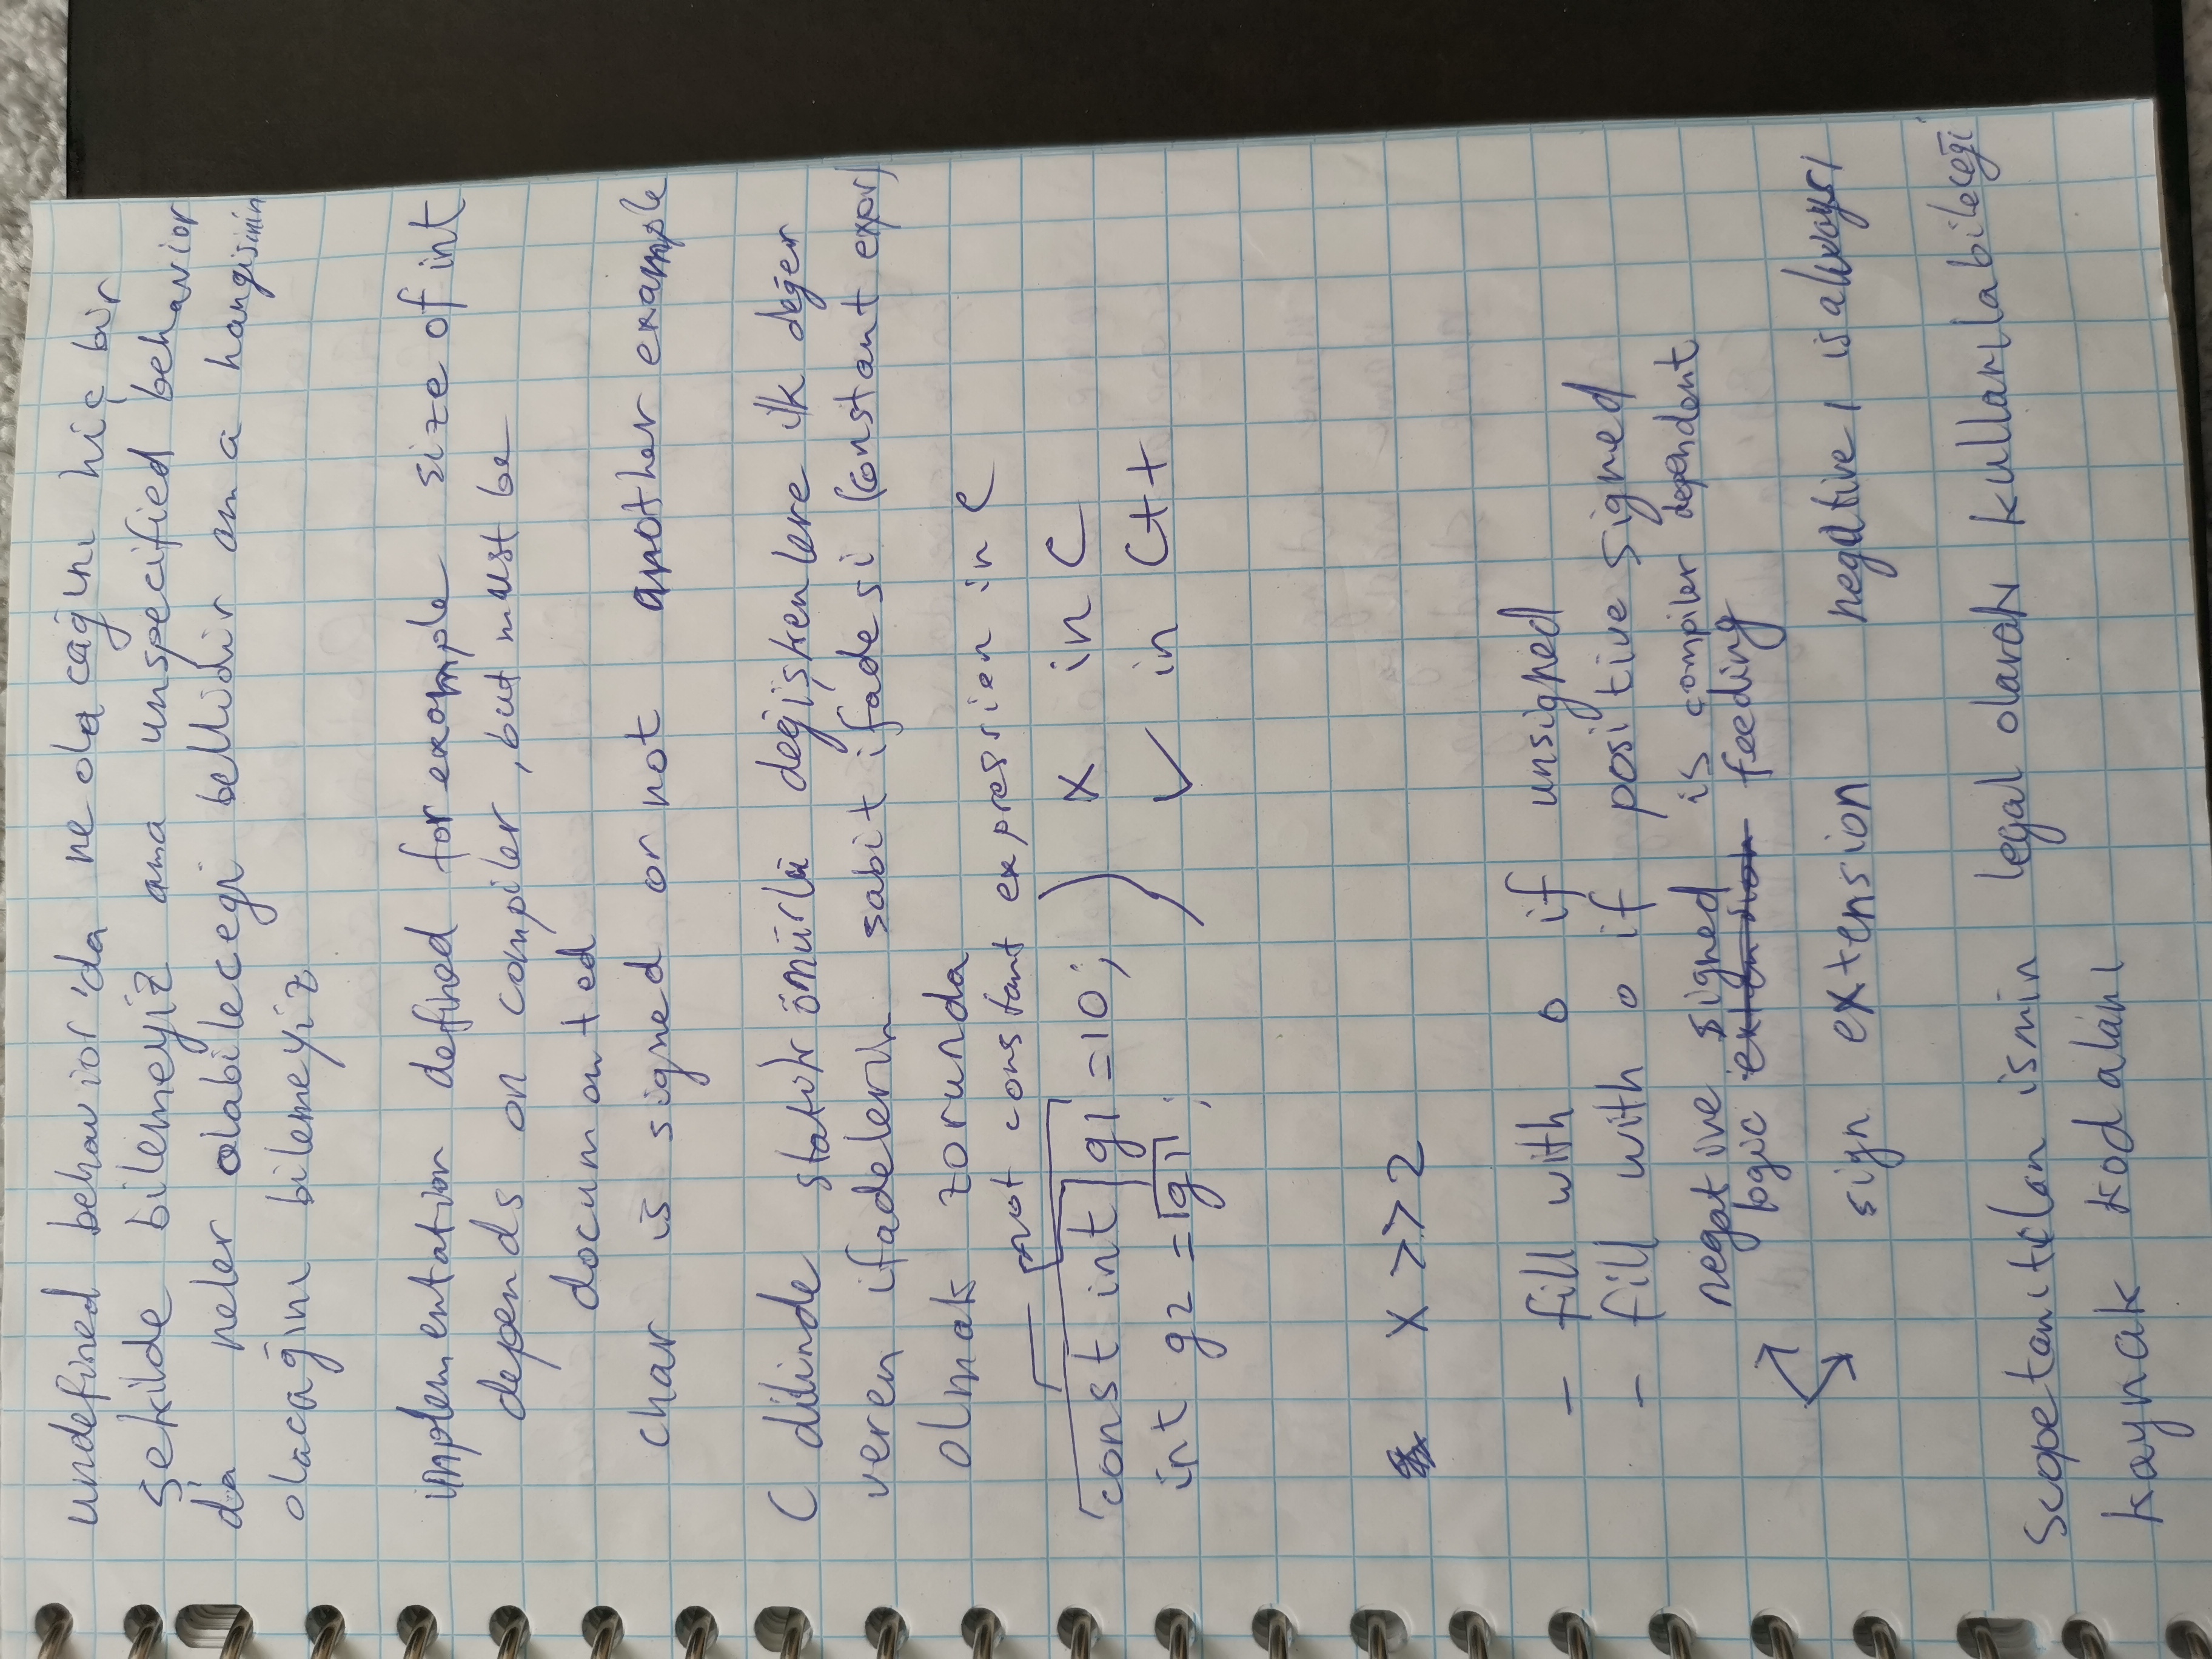 undefined behavior'da ne olacağını hiç bir
şekilde bilemeyiz ama unspecified behavior
da neler olabilecegi bellidir ama hangisinin
olacağını bilemeyiz
implementation defined for example size of int
depends on compiler, but must be
documented
char is signed or not another example
C dilinde statik ömürlü değişkenlere ilk değer
veren ifadelerin sabit ifadesi (constant expr)
olmak zorunda
not constant expression in C
const int g1 = 10; x in C
int g2 = g1; ✓ in C++
x >> 2
- fill with 0 if unsigned
- fill with 0 if positive signed
negative signed is compiler dependent
logic extension feeding
sign extension negative 1 is always 1
Scope tanıtılan ismin legal olarak kullanılabileceği
kaynak kod alanı